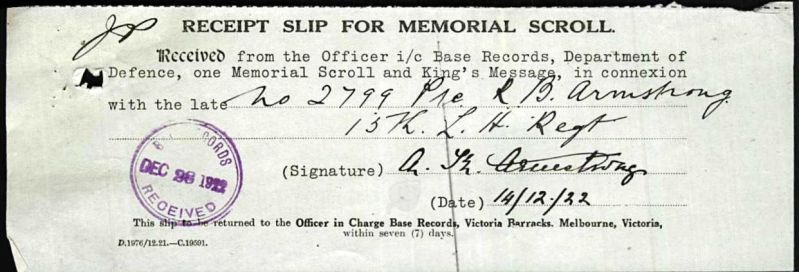 JP
RECEIPT SLIP FOR MEMORIAL SCROLL.
Received from the Officer i/c Base Records, Department of
Defence, one Memorial Scroll and King's Message, in connexion
with the late No 2799 Pte R B. Armstrong
L. H. Regt
RECORDS
DEC 28 1922
RECEIVED
(Signature) Armstrong
(Date) 14/12/22
This slip to be returned to the Officer in Charge Base Records, Victoria Barracks. Melbourne, Victoria,
within seven (7) days.
D.1976/12.21.—C.19591.